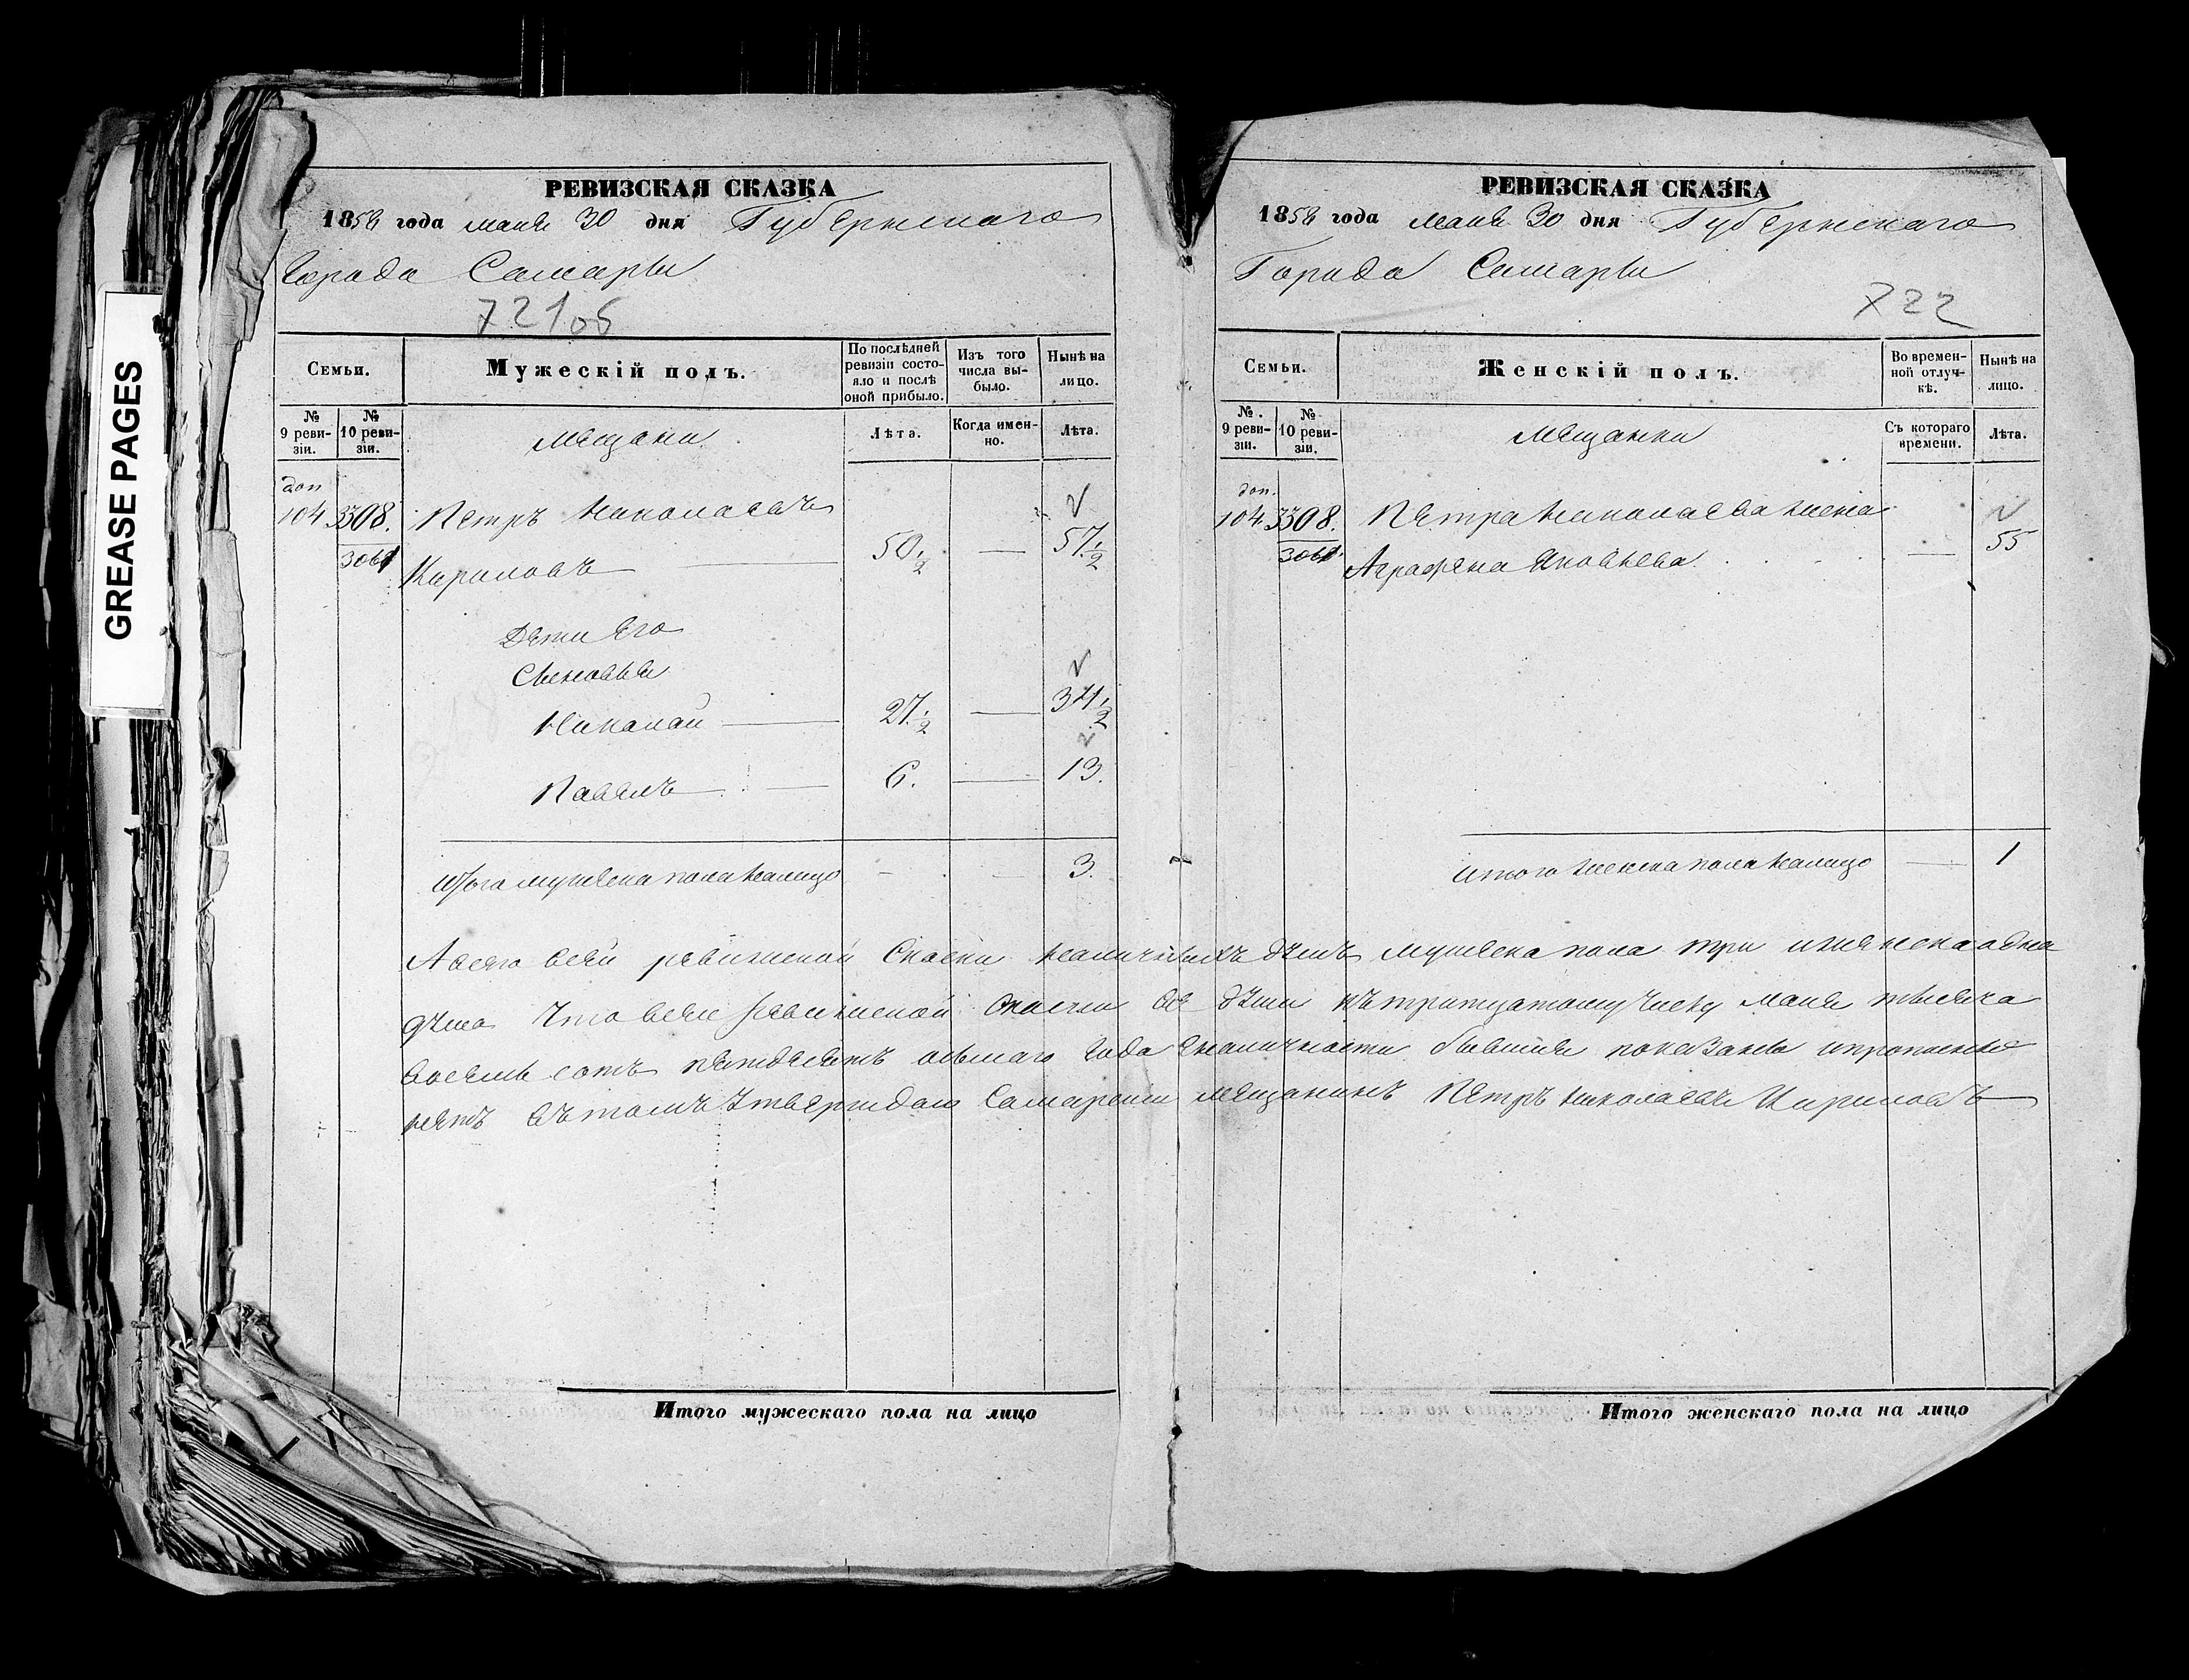 GREASE PAGES
РЕВИЗСКАЯ СКАЗКА
1858 года маия 30 дня Губернскаго
Города Самары
721об
Семьи.
Мужескій полъ.
По послѣдней ревизіи состояло и послѣ оной прибыло.
Изъ того числа выбыло.
Нынѣ на лицо.
№ 9 ревизіи.
№ 10 ревизіи.
Мещани
Лѣта.
Когда именно.
Лѣта.
доп
104 3308. Петръ Николаевъ
3061 Кириловъ 50 1/2 — 57 1/2
Дети Его
Сыновья
Николай — 27 1/2 — 34 1/2
Павелъ — 6. — 13.
Итого мужеска пола налицо - - 3.
Итого мужескаго пола на лицо
РЕВИЗСКАЯ СКАЗКА
1858 года маия 30 дня Губернскаго
Города Самары
722
Семьи.
Женскій полъ.
Во временной отлучкѣ.
Нынѣ на лицо.
№ 9 ревизіи.
№ 10 ревизіи.
Мещанки
Съ котораго времени.
Лѣта.
доп.
104. 3308. Петра Николаева жена
3061. Аграфена Яковлева. — 55
итого женска пола налицо — 1
А всего всей ревижской Скаски наличныхъ душъ мужеска пола три и женска одна
душа Что всей ревижской скаски все души къ тритцатому числу маия тысяча
восемь сотъ пятдесятъ осьмаго года вналичности бывшия показаны и пропаски
нетъ въ томъ Утверждаю Самарский мещанинъ Петръ Николаевъ Кириловъ
Итого женскаго пола на лицо